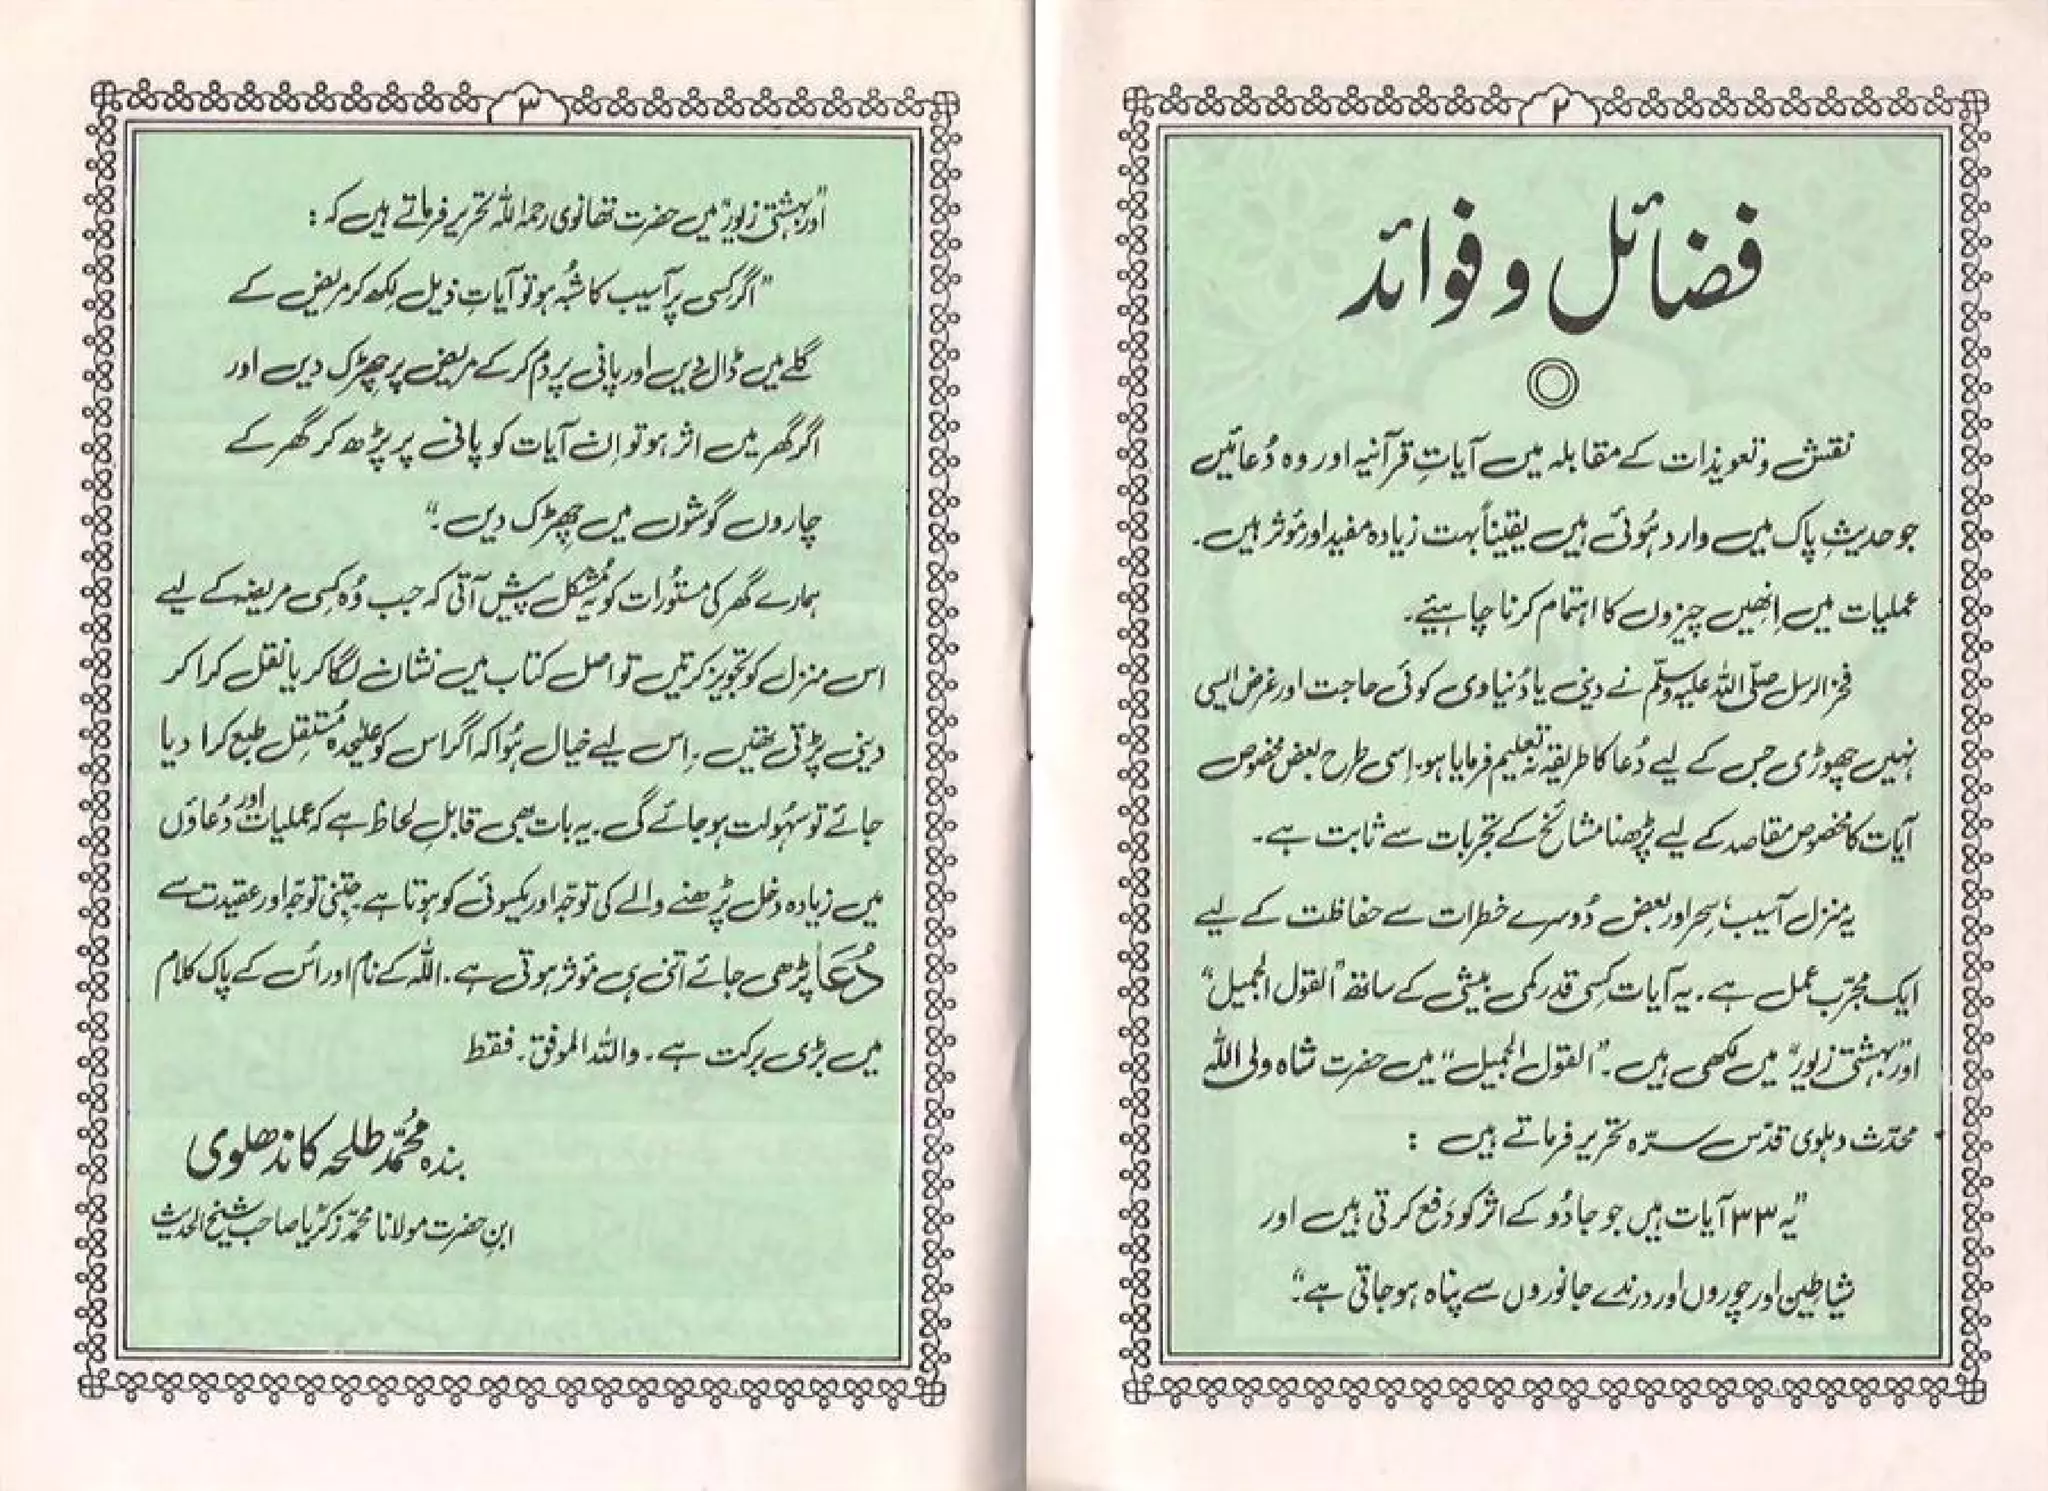 ۲
فضائل و فوائد
نقش و تعویذات کے مقابلہ میں آیاتِ قرآنیہ اور وہ دُعائیں
جو حدیثِ پاک میں وارد ہُوئی ہیں یقیناً بہت زیادہ مفید اور مؤثر ہیں۔
عملیات میں اِنھیں چیزوں کا اہتمام کرنا چاہیئے۔
فخر الرسل صلّی اللہ علیہ وسلّم نے دینی یا دُنیاوی کوئی حاجت اور غرض ایسی
نہیں چھوڑی جس کے لیے دُعا کا طریقہ نہ تعلیم فرمایا ہو۔ اِسی طرح بعض مخصوص
آیات کا مخصوص مقاصد کے لیے پڑھنا مشائخ کے تجربات سے ثابت ہے۔
یہ منزل آسیب، سِحر اور بعض دُوسرے خطرات سے حفاظت کے لیے
ایک مجرّب عمل ہے۔ یہ آیات کِسی قدر کمی بیشی کے ساتھ "القول الجمیل"
اور "بہشتی زیور" میں لکھی ہیں۔ "القول الجمیل" میں حضرت شاہ ولی اللہ
محدّث دہلوی قدّس سرّہ تحریر فرماتے ہیں :
"یہ ۳۳ آیات ہیں جو جادُو کے اثر کو دَفع کرتی ہیں اور
شیاطین اور چوروں اور درندے جانوروں سے پناہ ہو جاتی ہے۔"
۳
اور "بہشتی زیور" میں حضرت تھانوی رحمہ اللہ تحریر فرماتے ہیں کہ :
"اگر کسی پر آسیب کا شُبہ ہو تو آیاتِ ذیل لِکھ کر مریض کے
گلے میں ڈال دیں اور پانی پر دم کر کے مریض پر چھڑک دیں اور
اگر گھر میں اثر ہو تو اِن آیات کو پانی پر پڑھ کر گھر کے
چاروں گوشوں میں چھڑک دیں۔"
ہمارے گھر کی مستُورات کو یہ مُشکل پیش آتی کہ جب وُہ کِسی مریضہ کے لیے
اس منزل کو تجویز کرتیں تو اصل کتاب میں نشان لگا کر یا نقل کرا کر
دینی پڑتی تھیں۔ اِس لیے خیال ہُوا کہ اگر اس کو علیٰحدہ مُستقِل طبع کرا دیا
جائے تو سہُولت ہو جائے گی۔ یہ بات بھی قابلِ لحاظ ہے کہ عملیات اور دُعاؤں
میں زیادہ دخل پڑھنے والے کی توجّہ اور یکسوئی کو ہوتا ہے جتنی توجّہ اور عقیدت سے
دُعا پڑھی جائے اتنی ہی مؤثر ہوتی ہے۔ اللہ کے نام اور اُس کے پاک کلام
میں بڑی برکت ہے۔ واللہ الموفق۔ فقط
بندہ محمّد طلحہ کاندھلوی
ابنِ حضرت مولانا محمّد زکریا صاحب شیخ الحدیث